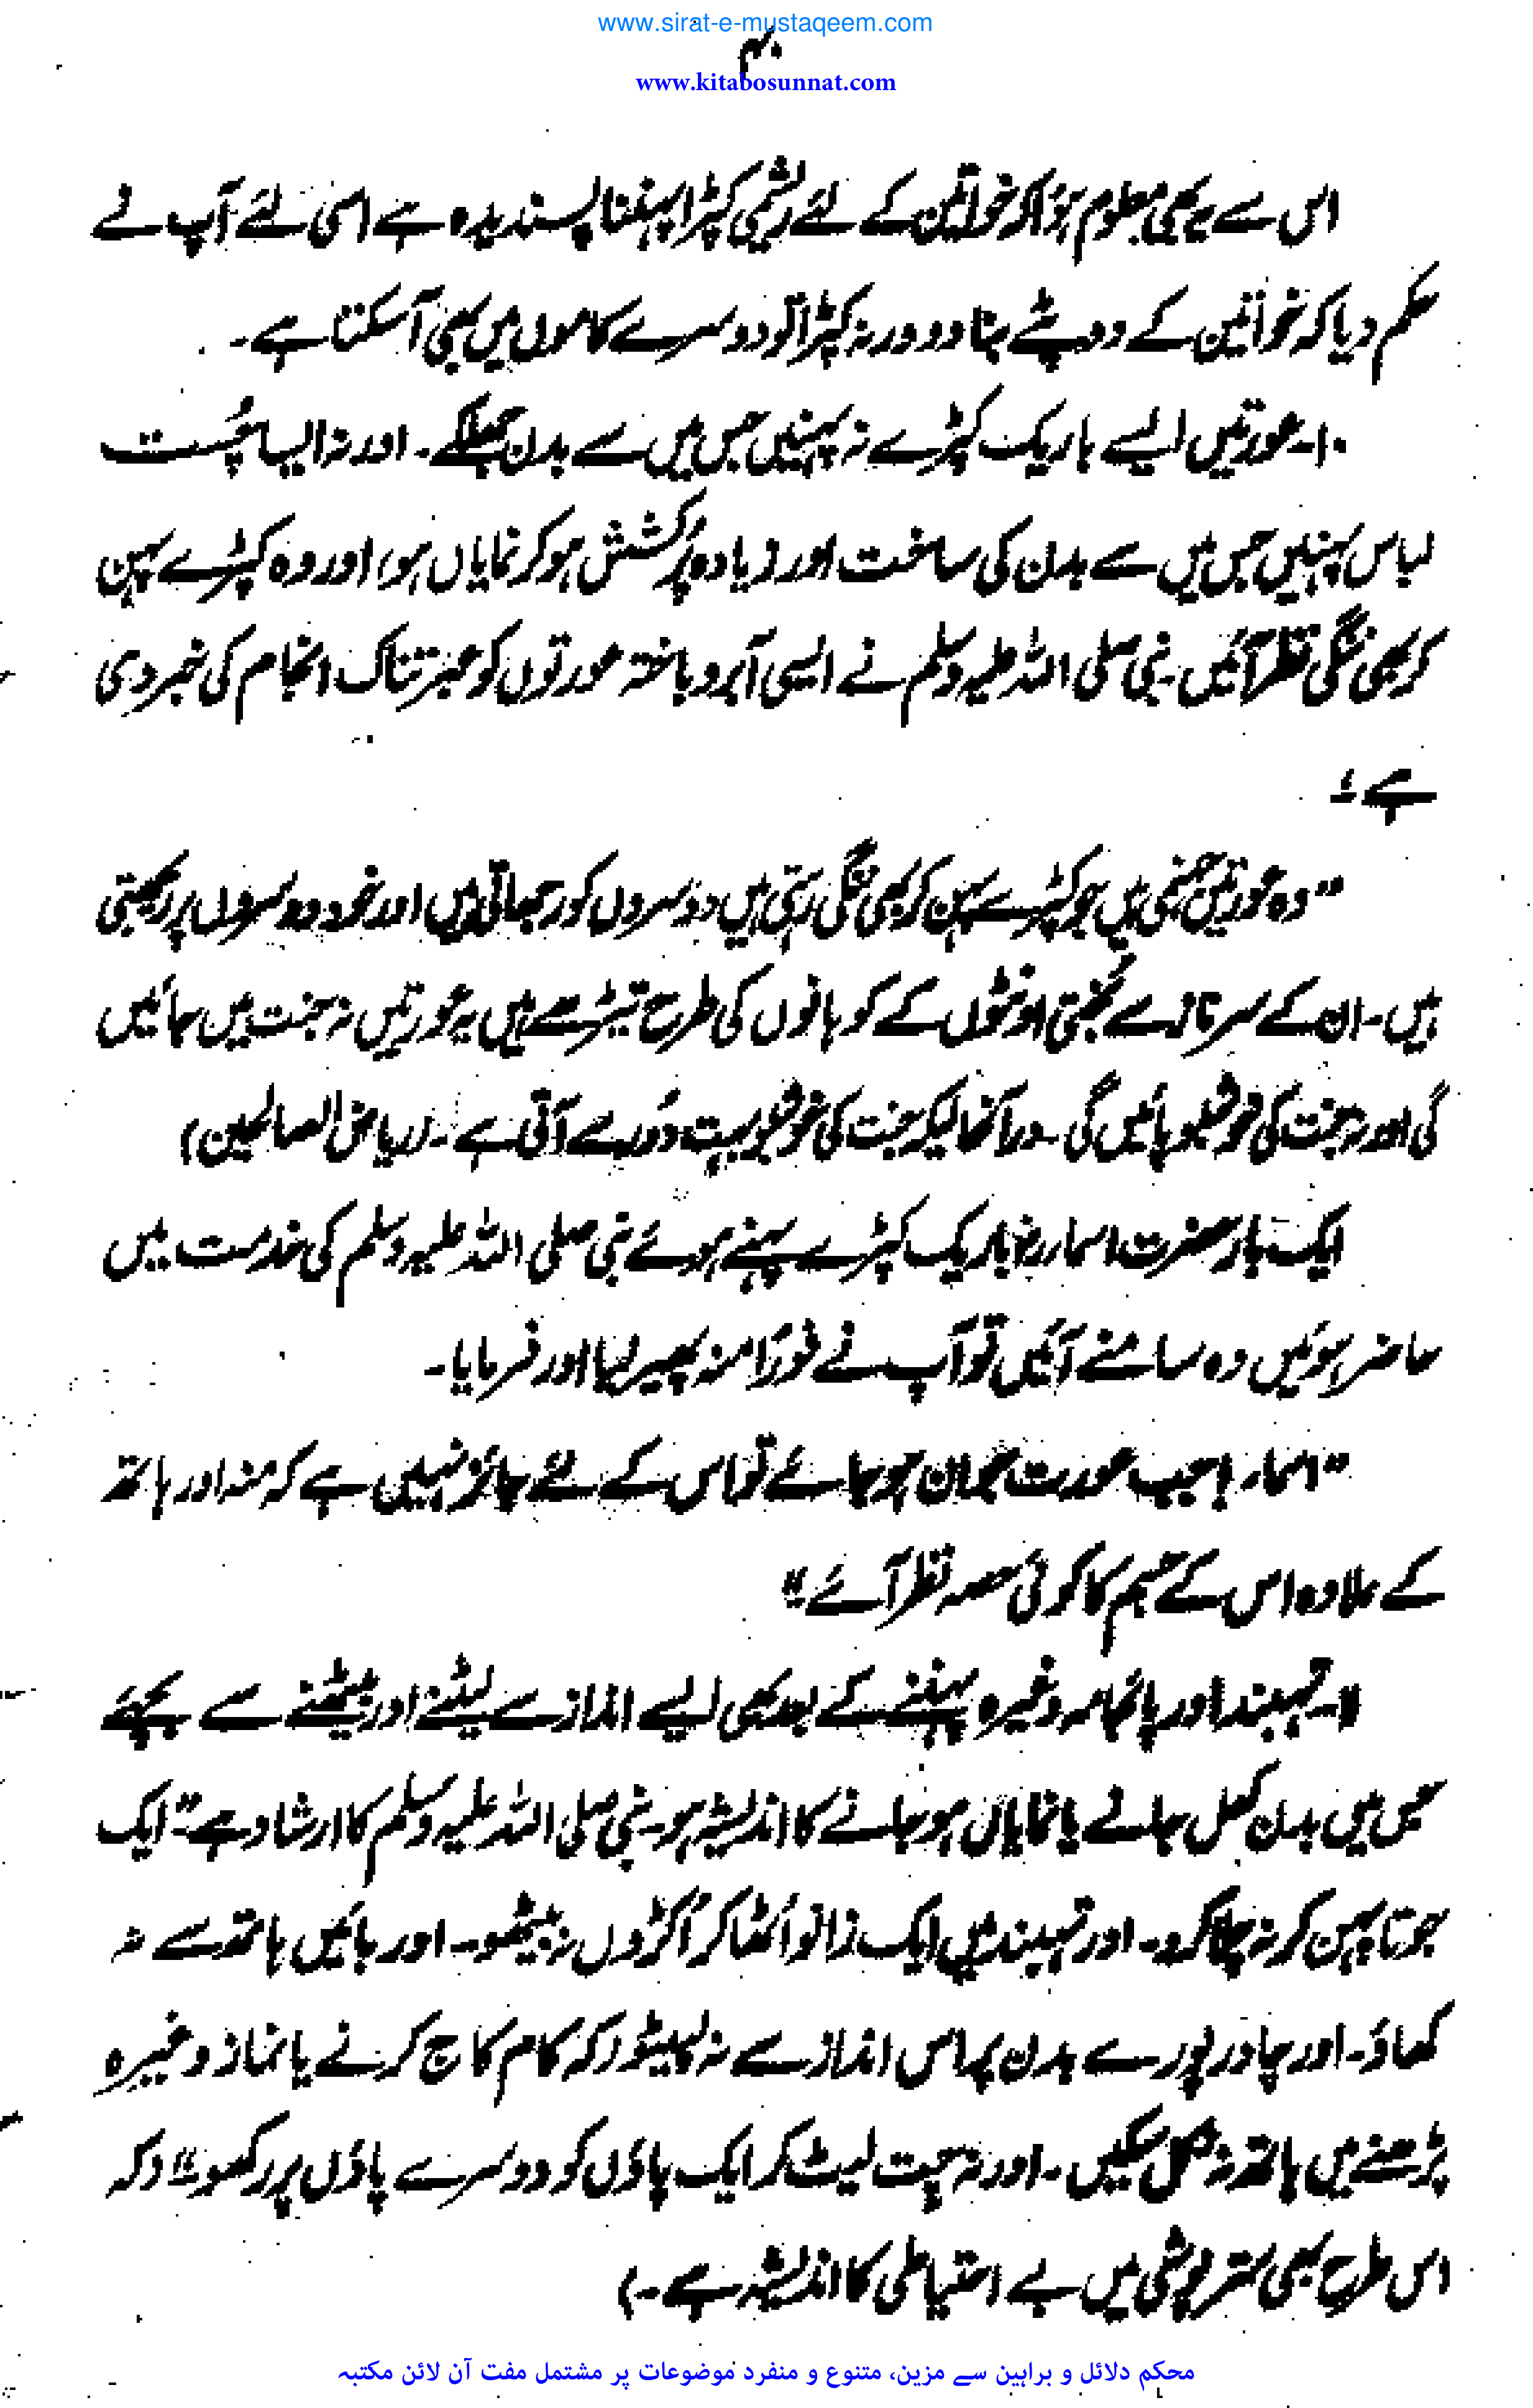 www.sirat-e-mustaqeem.com
۴۰
www.kitabosunnat.com
اس سے یہ بھی معلوم ہؤا کہ خواتین کے لئے ریشمی کپڑا پہننا پسندیدہ ہے اسی لئے آپ نے
حکم دیا کہ خواتین کے دوپٹے بنا دو ورنہ کپڑا تو دوسرے کاموں میں بھی آسکتا ہے۔
۱۰۔ عورتیں ایسے باریک کپڑے نہ پہنیں جس میں سے بدن جھلکے۔ اور نہ ایسا چُست
لباس پہنیں جس میں سے بدن کی ساخت اور زیادہ پُرکشش ہو کر نمایاں ہو، اور وہ کپڑے پہن
کر بھی ننگی نظر آئیں۔ نبی صلی اللہ علیہ وسلم نے ایسی آبرو باختہ عورتوں کو عبرتناک انجام کی خبر دی
ہے :
”وہ عورتیں جہنمی ہیں جو کپڑے پہن کر بھی ننگی رہتی ہیں دوسروں کو رجھاتی ہیں اور خود دوسروں پر ریجھتی
ہیں۔ ان کے سر ناز سے بُختی اونٹوں کے کوہانوں کی طرح ٹیڑھے ہیں یہ عورتیں نہ جنت میں جائیں
گی اور نہ جنت کی خوشبو پائیں گی۔ درآنحالیکہ جنت کی خوشبو بہت دُور سے آتی ہے۔ (ریاض الصالحین)
ایک بار حضرت اسمار رضؓ باریک کپڑے پہنے ہوئے نبی صلی اللہ علیہ وسلم کی خدمت میں
حاضر ہوئیں وہ سامنے آئیں تو آپ نے فوراً منہ پھیر لیا اور فرمایا۔
”اسمار! جب عورت جوان ہو جائے تو اس کے لئے جائز نہیں ہے کہ منہ اور ہاتھ
کے علاوہ اس کے جسم کا کوئی حصہ نظر آئے۔“
۱۱۔ تہبند اور پائجامہ وغیرہ پہننے کے بعد بھی ایسے انداز سے لیٹنے اور بیٹھنے سے بچیئے
جس میں بدن کھل جانے یا نمایاں ہو جانے کا اندیشہ ہو۔ نبی صلی اللہ علیہ وسلم کا ارشاد ہے ”ایک
جوتا پہن کر نہ چلا کرو۔ اور تہبند میں ایک زانو اُٹھا کر اُکڑوں نہ بیٹھو۔ اور بائیں ہاتھ سے نہ
کھاؤ۔ اور چادر پورے بدن پر اس انداز سے نہ لپیٹو (کہ کام کاج کرنے یا نماز وغیرہ
پڑھنے میں ہاتھ نہ نکل سکیں۔ اور نہ چت لیٹ کر ایک پاؤں کو دوسرے پاؤں پر رکھو۔“ (کہ
اس طرح بھی ستر پوشی میں بے احتیاطی کا اندیشہ ہے۔)
محکم دلائل و براہین سے مزین، متنوع و منفرد موضوعات پر مشتمل مفت آن لائن مکتبہ